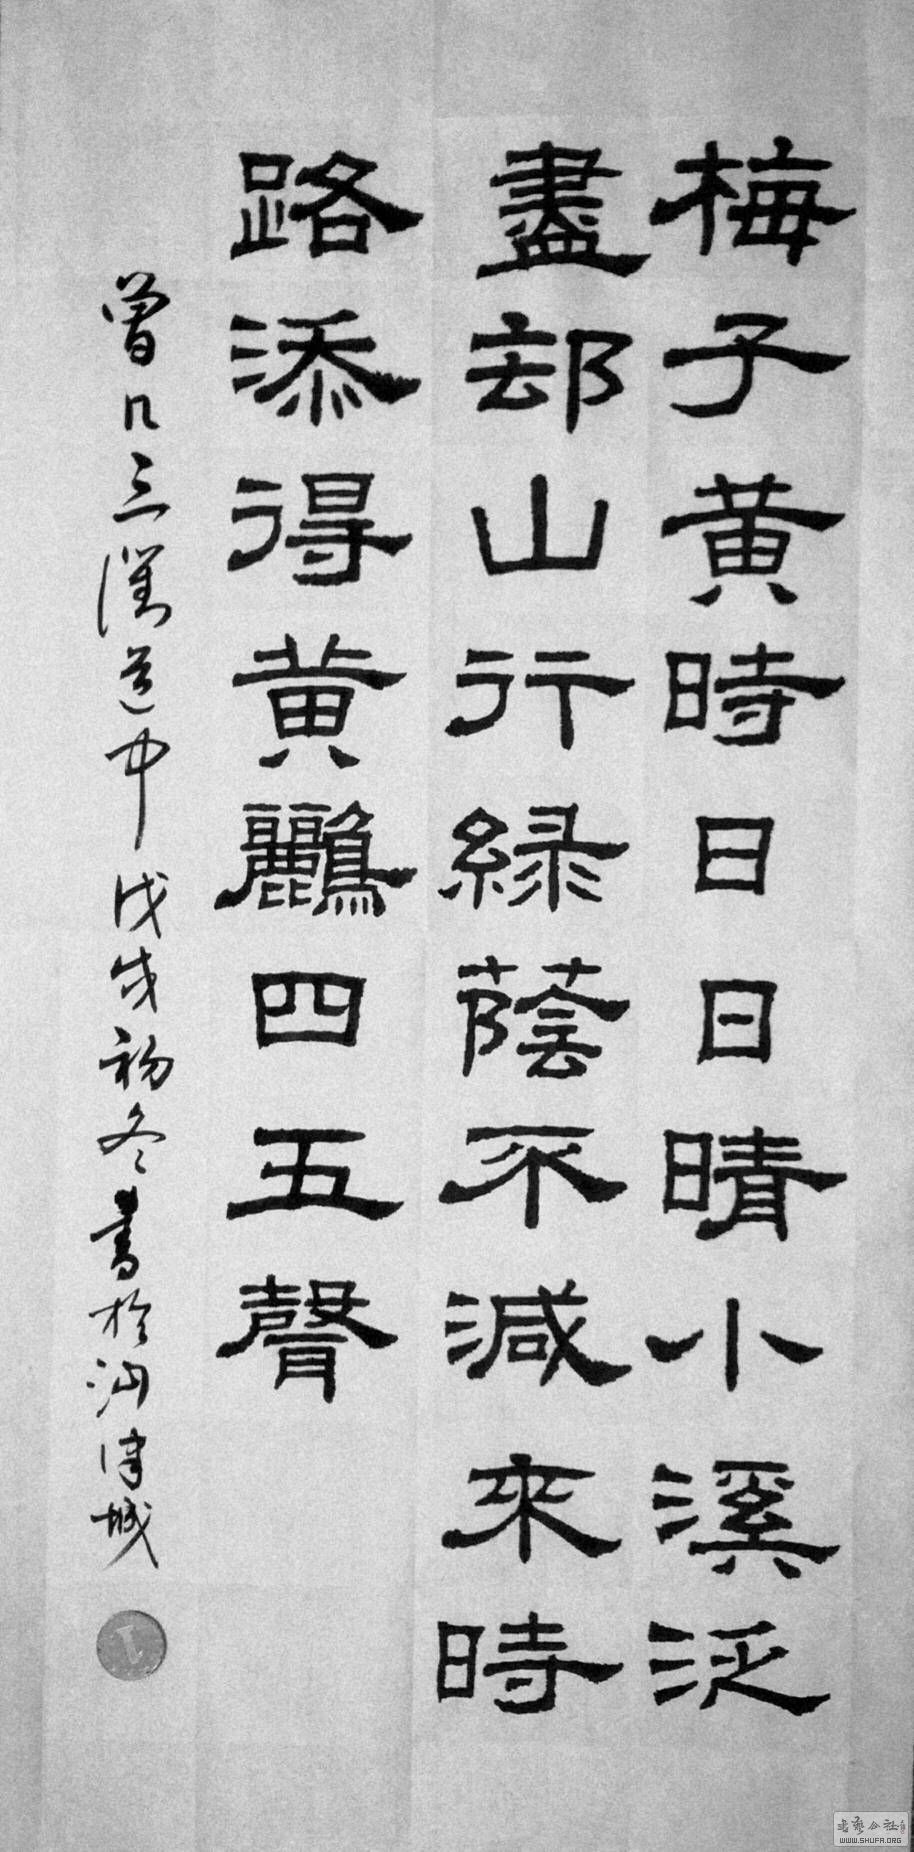 梅子黄時日日晴小溪泛
盡却山行緑蔭不減來時
路添得黄鸝四五聲
曾几三衢道中戊戌初冬書於汕津城
書藝公社
WWW.SHUFA.ORG